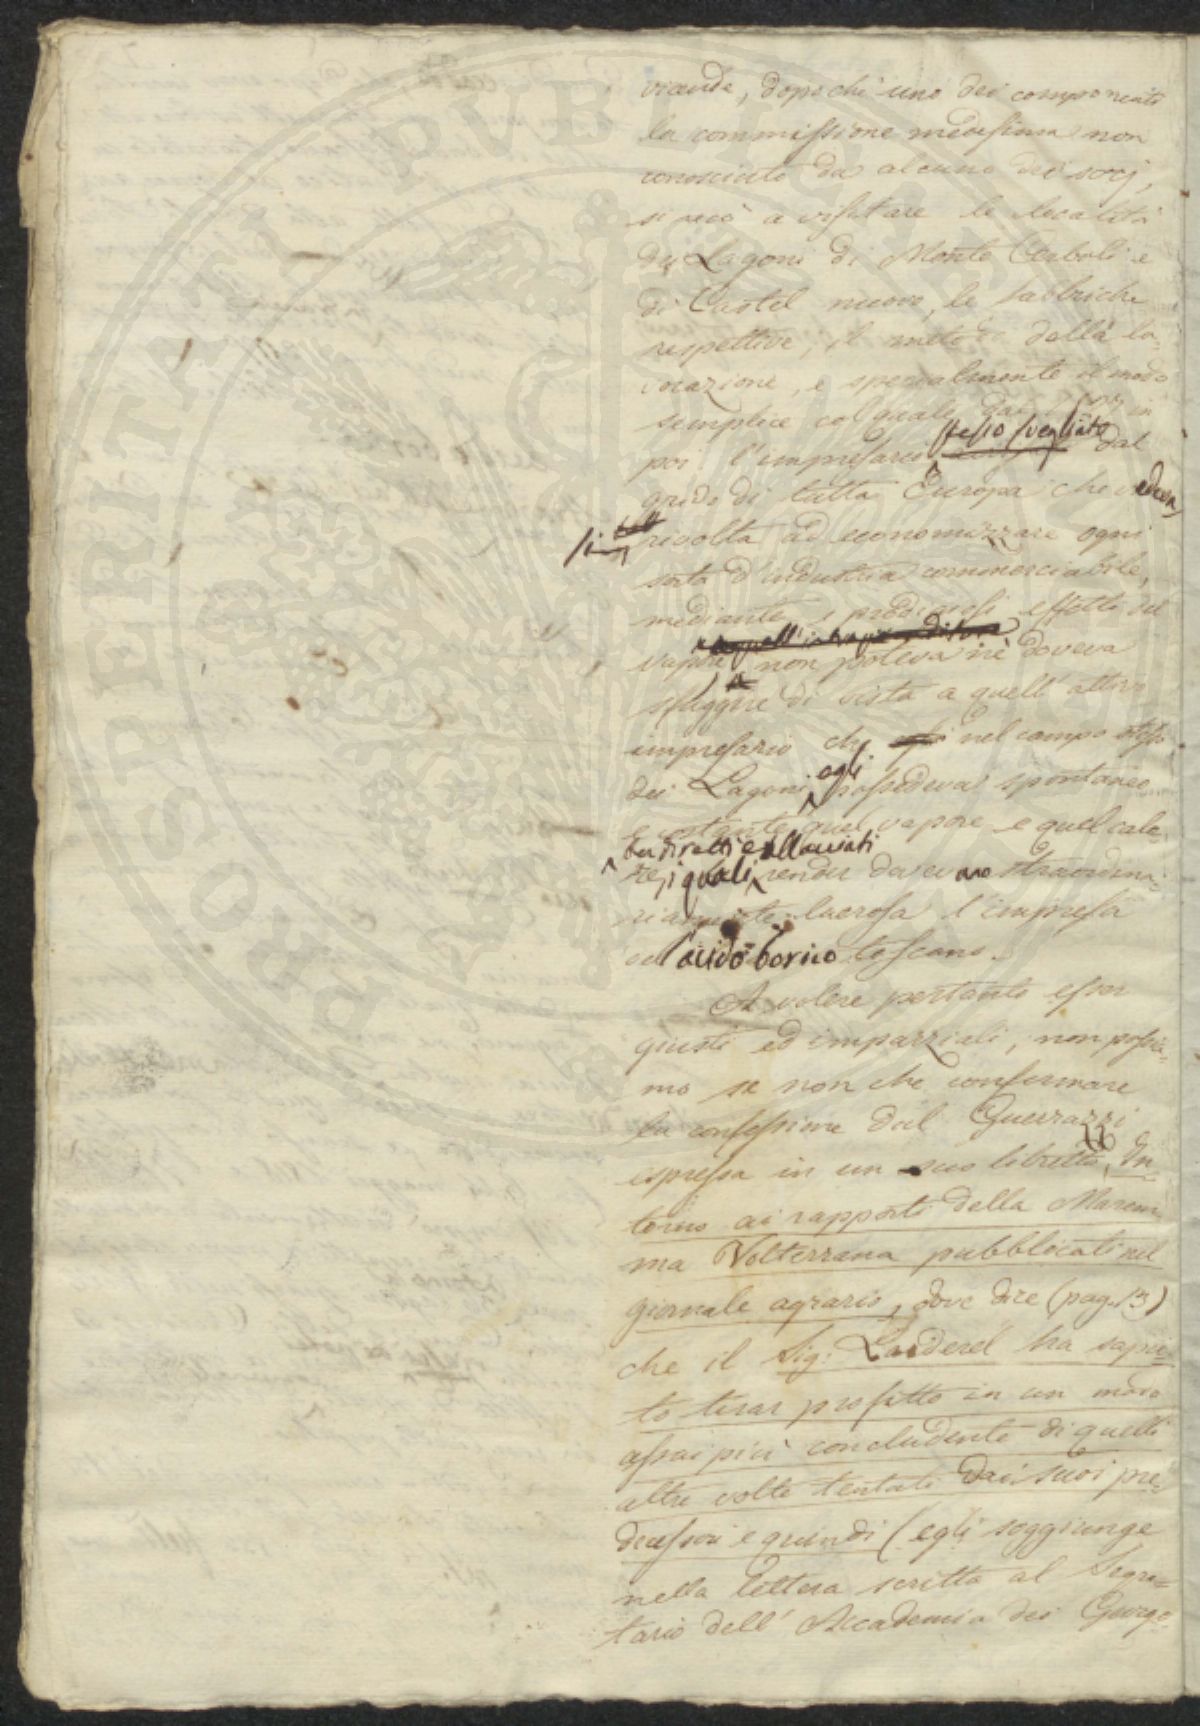 vicende, dopo che uno dei componenti
la commissione medesima non
conosciuto da alcuno dei socj,
si recò a visitare le località
dei Lagoni di Monte Cerboli e
di Castel nuovo, le fabbriche
respettive, il metodo della la-
vorazione, e specialmente il modo
semplice col quale in
stesso svegliato
poi l'impresario dal
grido di tutta Europa che vedeva
si rivolta ad economizzare ogni
sorta d'industria commerciabile,
mediante i prodigiosi effetti del
vapore, non poteva nè doveva
sfuggire di vista a quell'attivo
impresario che nel campo stesso
egli
dei Lagoni possedeva spontaneo
e costante quel vapore e quel calo-
ben diretti e allacciati
re, i quali render dovevano straordina-
riamente lucrosa l'impresa
dell'acido borico toscano.
A volere pertanto esser
giusti ed imparziali, non possia-
mo se non che confermare
la confessione dal Guerrazzi
espressa in un suo libretto, In-
torno ai rapporti della Marem-
ma Volterrana pubblicati nel
giornale agrario, dove dice (pag. 13)
che il Sig: Larderel ha sapu-
to tirar profitto in un modo
assai più concludente di quelli
altre volte tentati dai suoi pre-
decessori e quindi (egli soggiunge
nella lettera scritta al Segre-
tario dell'Accademia dei Georgo-